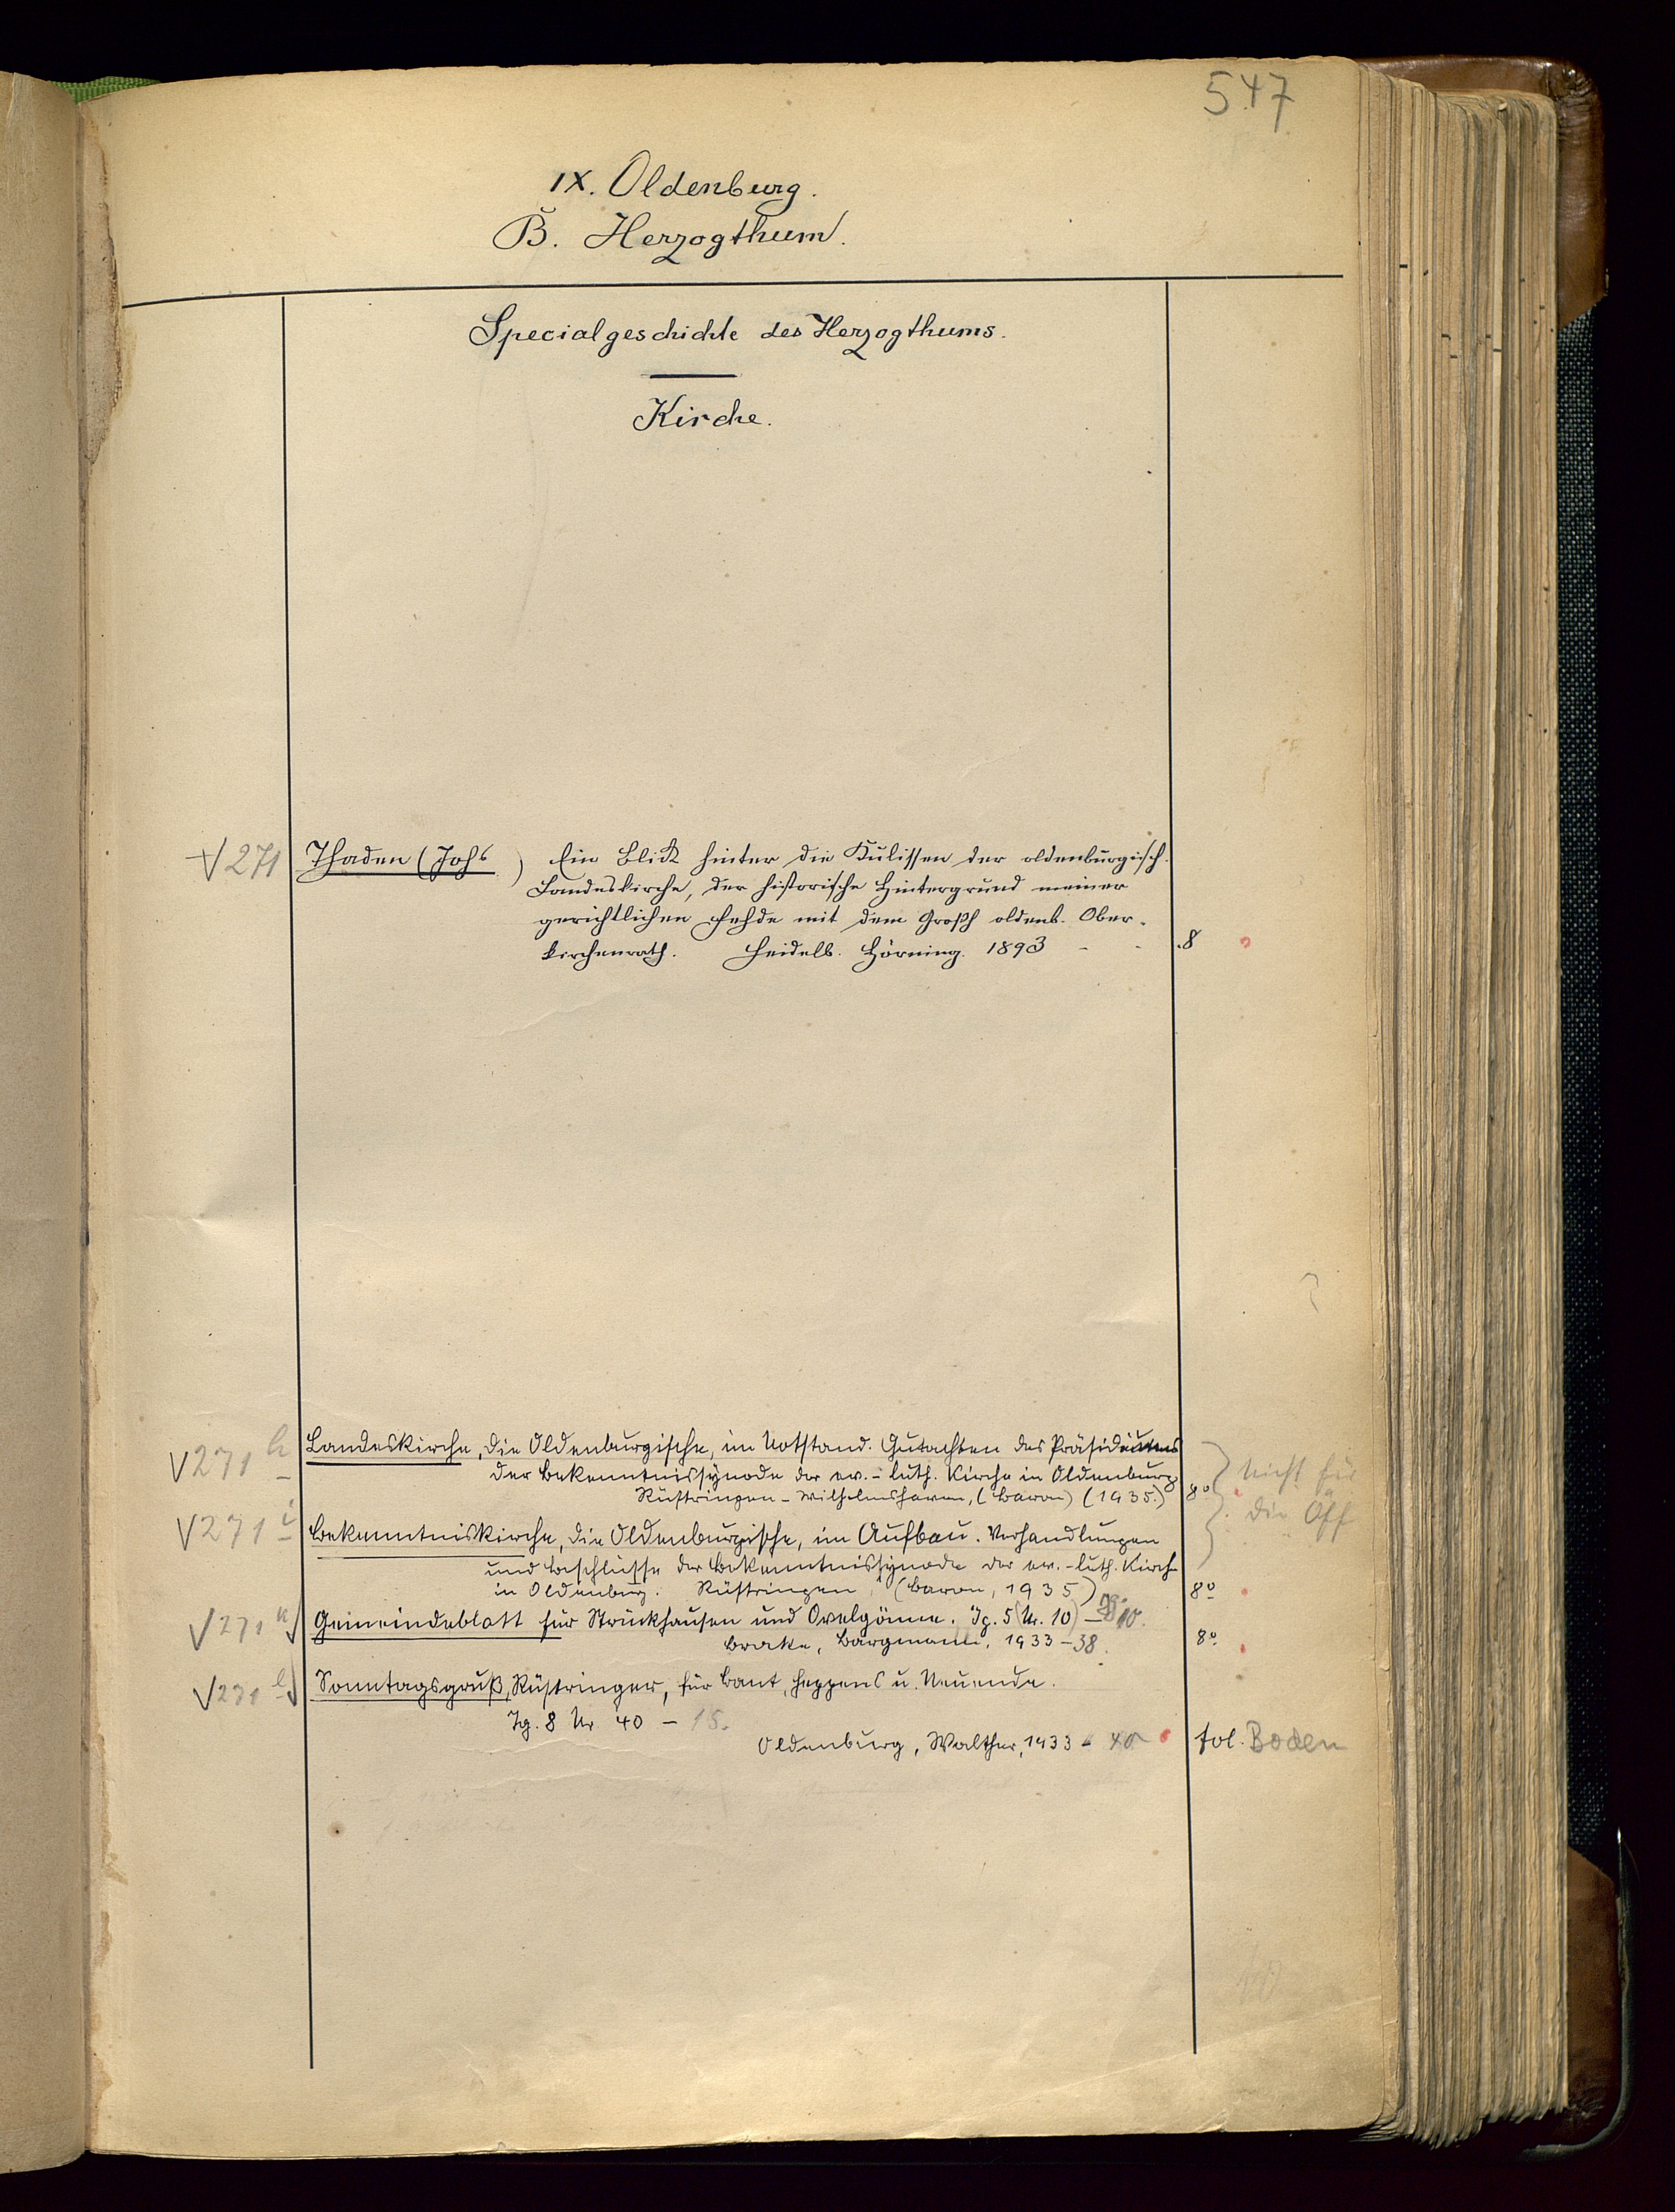 547
IX. Oldenburg.
B. Herzogthum.
Specialgeschichte des Herzogthums.
Kirche.
V 271 Thaden (Johs ) Ein Blick hinter die Kulissen der oldenburgisch.
Landeskirche, der historische Hintergrund meiner
gerichtlichen Fehde mit dem Großh oldenb. Ober-
kirchenrath. Heidelb. Hörning. 1893 - - . 8
V 271 h Landeskirche, Die Oldenburgische, im Notstand. Gutachten des Präsidiums
der Bekenntnissynode der ev.-luth. Kirche in Oldenburg
Rüstringen-Wilhelmshaven, (Baron) (1935.) 8°. nicht für
die Öff
V 271 i Bekenntniskirche, Die Oldenburgische, im Aufbau. Verhandlungen
und Beschlüsse der Bekenntnissynode der ev.-luth. Kirche
in Oldenburg. Rüstringen, (Baron, 1935) 8°
V 271 k Gemeindeblatt für Strückhausen und Ovelgönne. Jg. 5 (Nr. 10) - 10.
Brake, Bargmann, 1933-38. 8°
V 271 l Sonntagsgruß, Rüstringer, für Bant, Heppens u. Neuende.
Jg. 8 Nr 40 - 15.
Oldenburg, Walther, 1933 - 40 fol. Boden